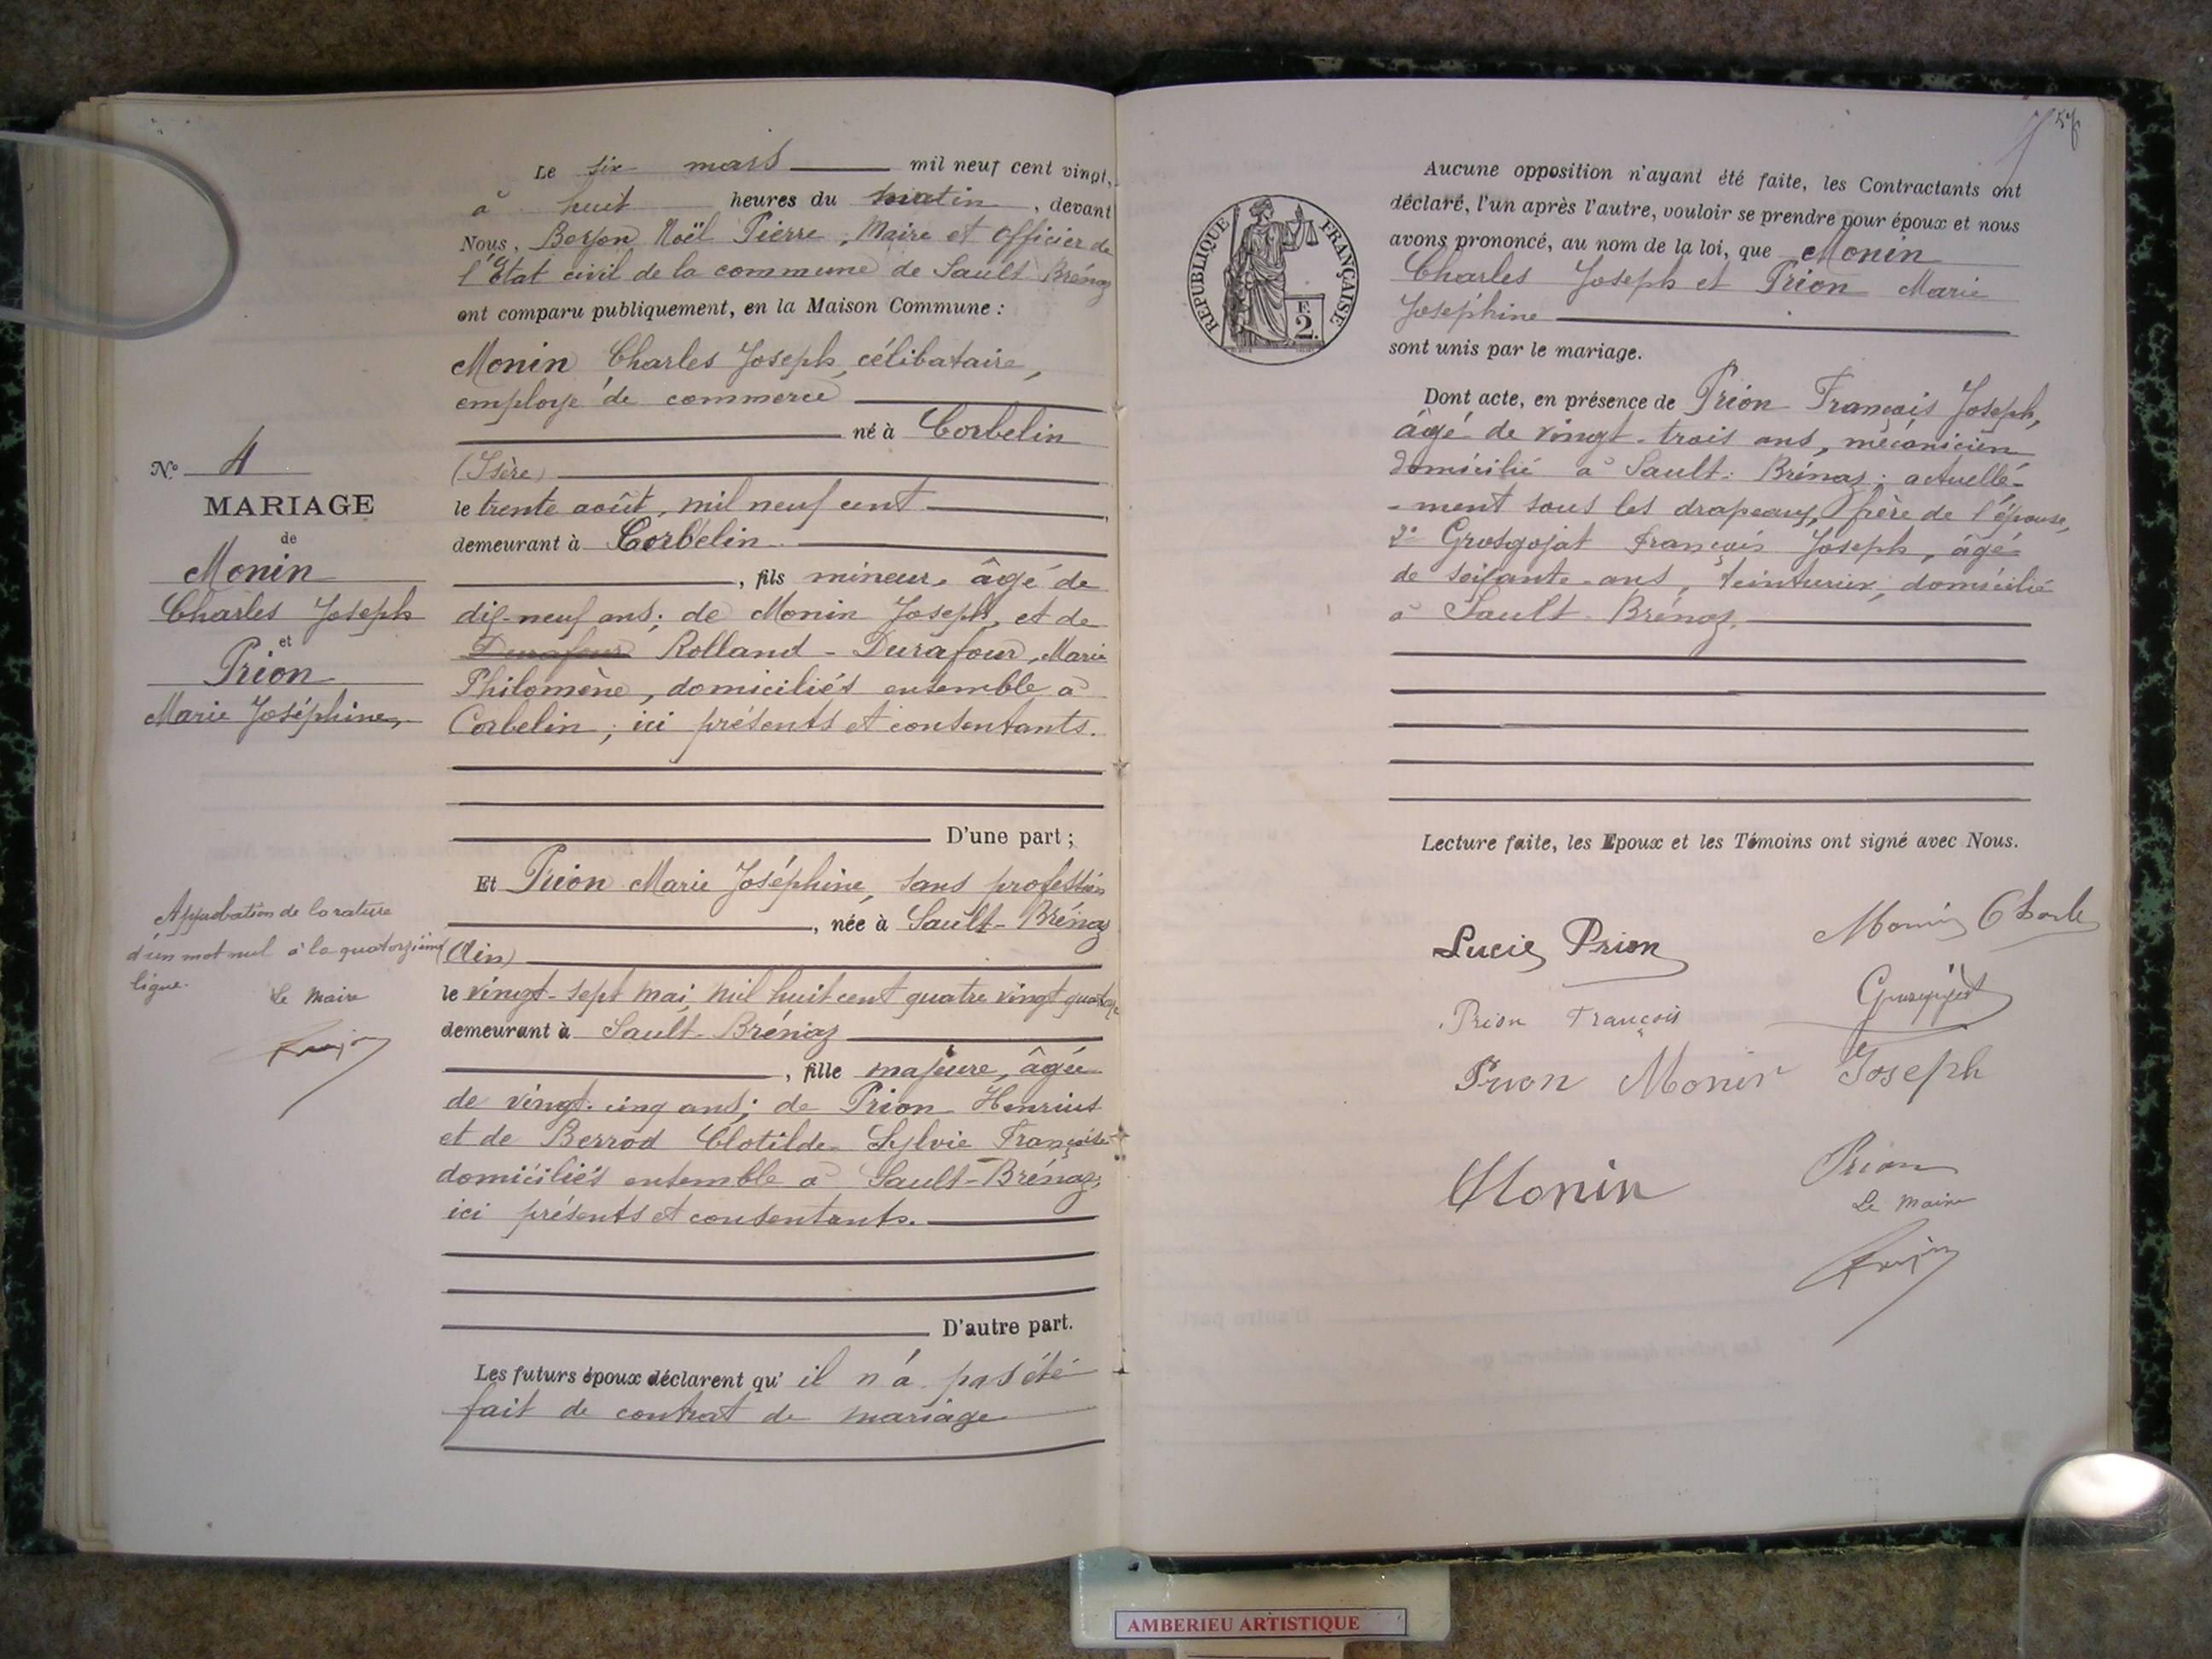 Le six mars mil neuf cent vingt,
à huit heures du matin, devant
Nous, Noël Pierre, Maire et Officier de
l'État civil de la commune de Sault-Brénaz
ont comparu publiquement, en la Maison Commune :
Monin Charles Joseph, célibataire,
employé de commerce
né à Corbelin
(Isère)
le trente août, mil neuf cent
demeurant à Corbelin
, fils mineur, âgé de
dix-neuf ans; de Monin Joseph, et de
Durafour Rolland-Durafour, Marie
Philomène, domiciliés ensemble à
Corbelin; ici présents et consentants.
D'une part;
Et Prion Marie Joséphine, sans profession
, née à Sault-Brénaz
(Ain)
le vingt-sept mai, mil huit cent quatre vingt quatorze
demeurant à Sault-Brénaz
, fille majeure, âgée
de vingt-cinq ans; de Prion Henrius
et de Berrod Clotilde Sylvie Françoise
domiciliés ensemble à Sault-Brénaz;
ici présents et consentants.
D'autre part.
Les futurs époux déclarent qu'il n'a pas été
fait de contrat de mariage
No 4
MARIAGE
de
Monin
Charles Joseph
et
Prion
Marie Joséphine
Approbation de la rature
d'un mot nul à la quatorzième
ligne.
Le Maire
Aucune opposition n'ayant été faite, les Contractants ont
déclaré, l'un après l'autre, vouloir se prendre pour époux et nous
avons prononcé, au nom de la loi, que Monin
Charles Joseph et Prion Marie
Joséphine
sont unis par le mariage.
REPUBLIQUE FRANÇAISE
F.
2.
Dont acte, en présence de Prion François Joseph,
âgé de vingt-trois ans, mécanicien
domicilié à Sault-Brénaz; actuelle-
-ment sous les drapeaux, frère de l'épouse,
2° Grosgojat François Joseph, âgé
de soixante ans, teinturier, domicilié
à Sault-Brénaz.
Lecture faite, les Epoux et les Témoins ont signé avec Nous.
Lucie Prion
Monin Charle
Prion François
Grosgojat
Prion Monin Joseph
Monin
Prion
Le Maire
AMBERIEU ARTISTIQUE